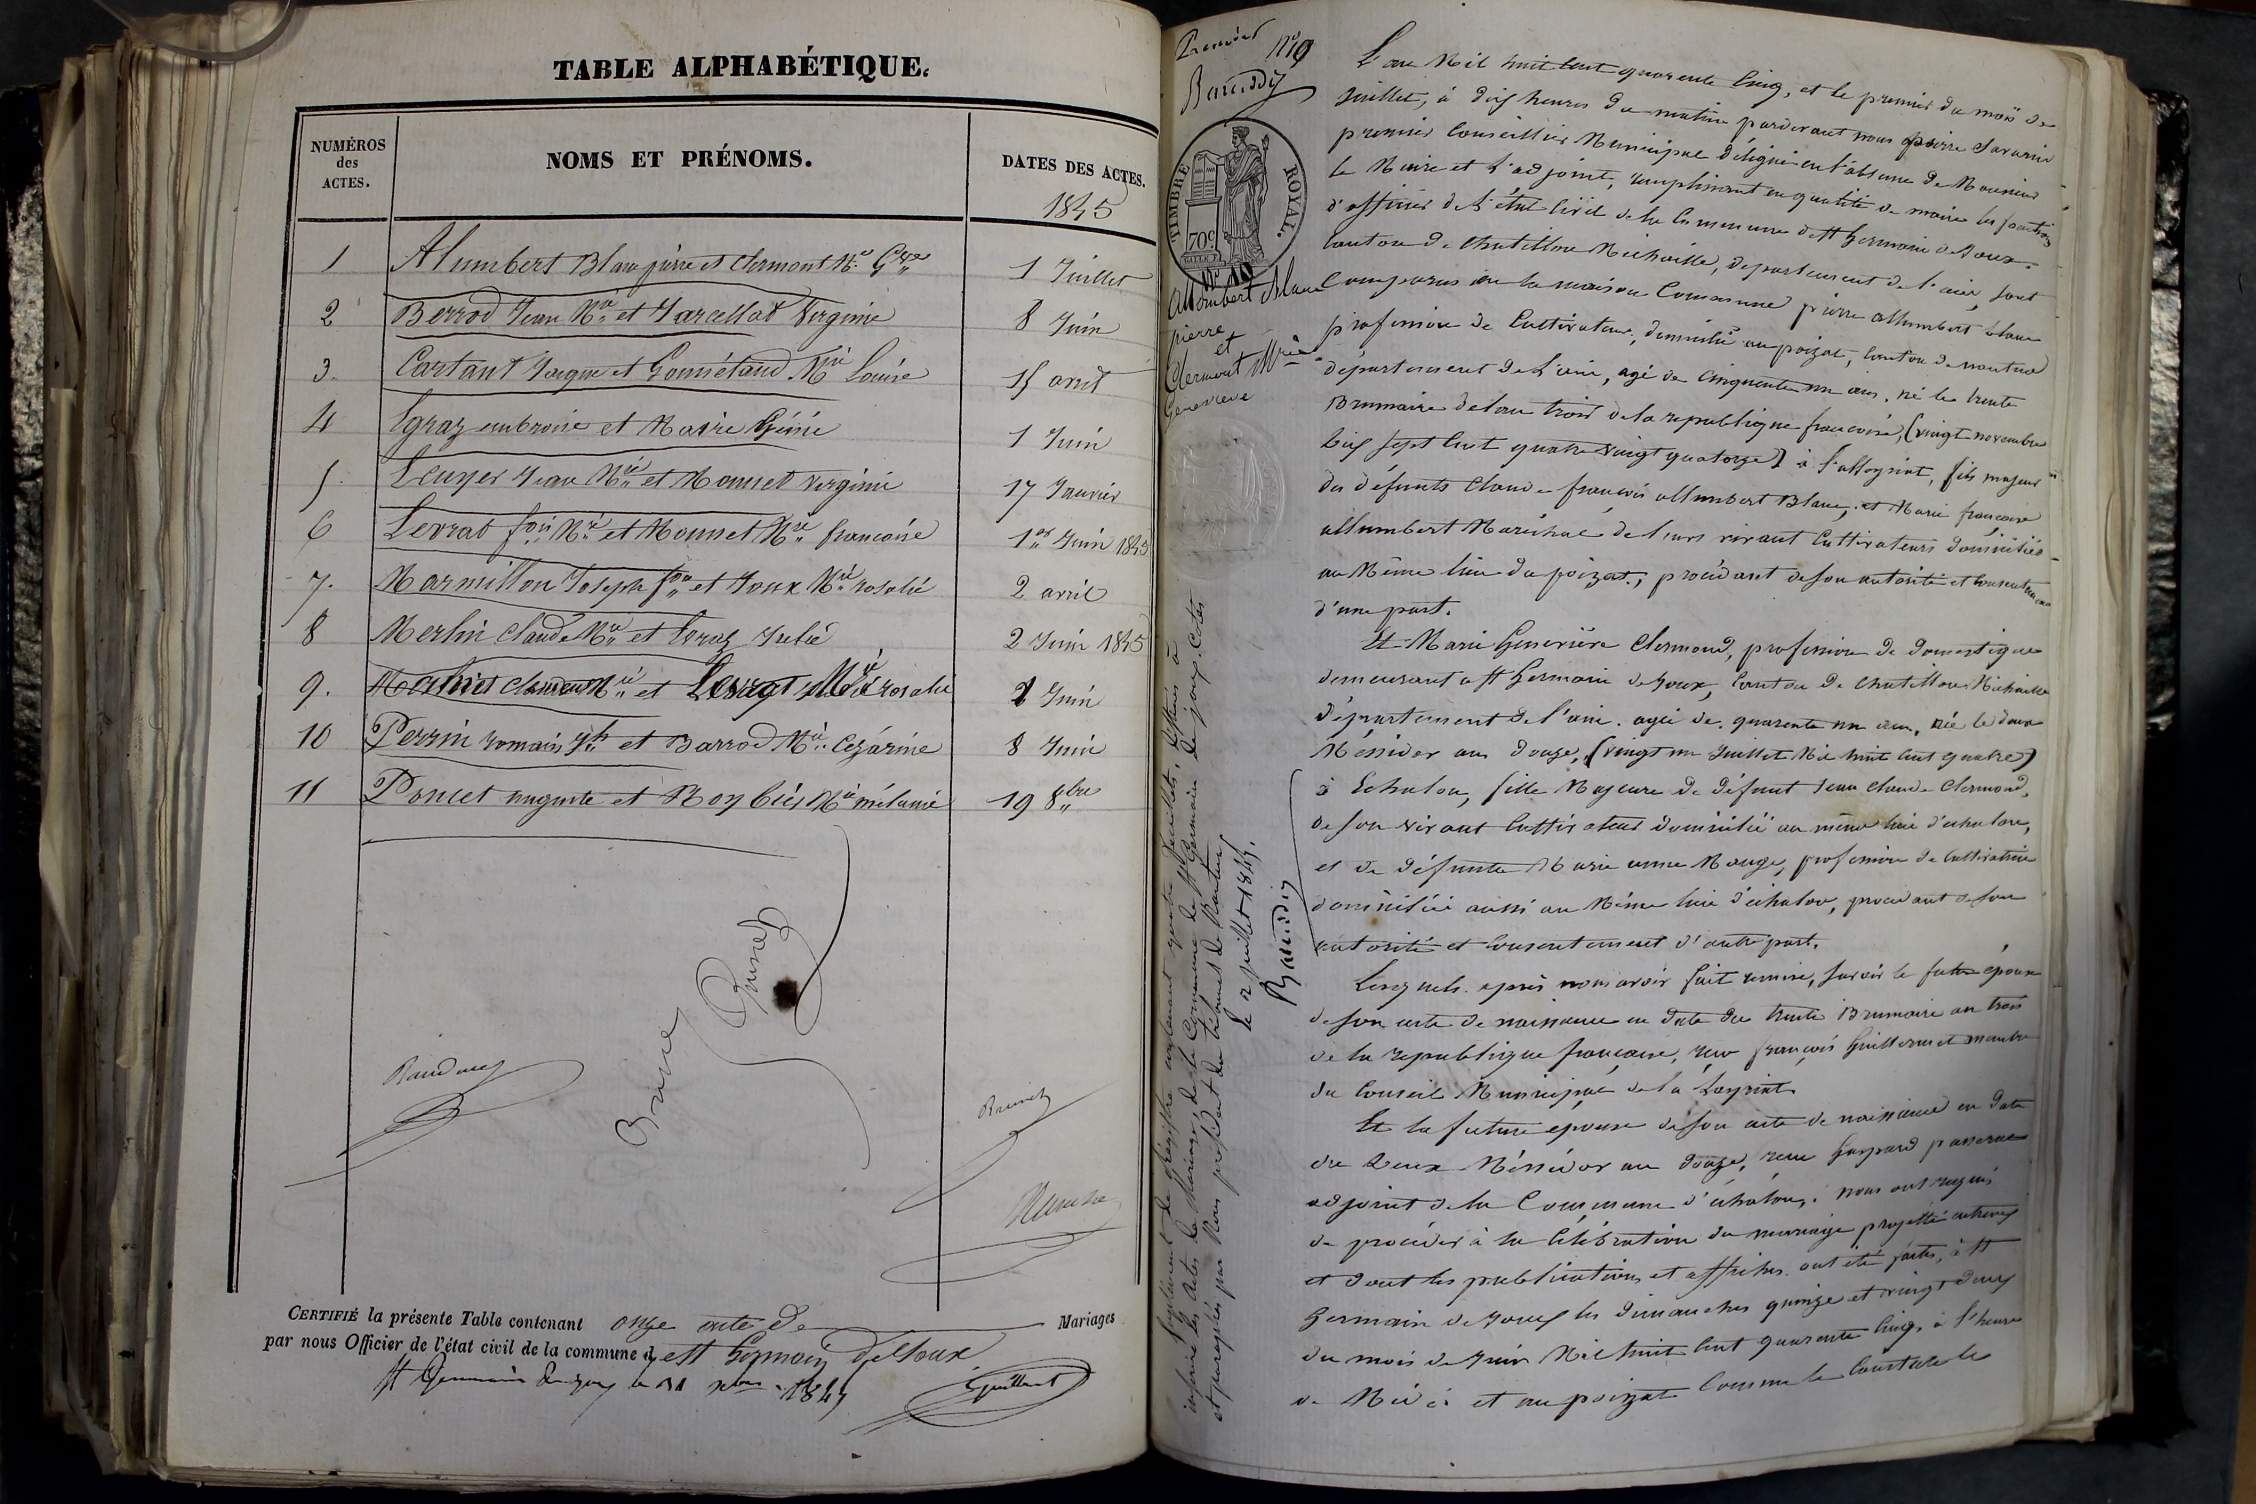 TABLE ALPHABÉTIQUE.
NUMÉROS
des
ACTES.
NOMS ET PRÉNOMS.
DATES DES ACTES.
1845
1 Alumbert Blanc pierre et Clermont 1 Juillet
2 Berrod Jean et Virginie 8 Juin
3. Cartant et Mie Louise 15 avril
4 Egraz ambroise et 1 Juin
5. Jean et Monnet Virginie 17 Janvier
6 Levrat et Monnet françoise 1er Juin 1845
7. Marmillon Joseph et Joux rosalie 2 avril
8 Merlin Claude et Egraz Julie 2 Juin 1845
9. et Levrat rosalie Juin
10 Perrin romain Jh et Barrod Cézarine 8 Juin
11 Poncet auguste et mélanie 19 8bre
CERTIFIÉ la présente Table contenant onze acte de Mariages
par nous Officier de l'état civil de la commune de St Germain de Joux
St Germain de Joux le 31 1845
Premier
N° 9
Baudin
TIMBRE ROYAL.
70c
N° 10
Allombert Blanc
pierre
et
Clermont Mie
Genevieve
L'an Mil huit cent quarente cinq, et le premier du mois de
Juillet, à dix heures du matin pardevant nous pierre Savarin
premier Conseiller Municipal délégué en l'absence de Monsieur
le Maire et l'adjoint, remplissant en qualité de maire les fonctions
d'officier de l'état civil de la Commune de St Germain de Joux.
Canton de Chatillon Michaille, departement de l'ain, sont
Comparus en la maison Commune pierre allumbert blanc
profession de Cultivateur, domicilié au poizat, Canton de nantua
département de l'ain, agé de cinquante un ans, né le trente
Brumaire de l'an trois de la republique francoise, (vingt novembre
sept cent quatre vingt quatorze) à fils majeur
des défunts Claude françois allumbert Blanc, et Marie françoise
allumbert Maréchal de leurs vivant Cultivateurs domiciliés
au Même lieu du poizat, procédant de son autorité et consentement
d'une part.
Et Marie Genevière Clermond, profession de domestique
demeurant a St Germain de Joux, Canton de Chatillon Michaille
département de l'ain, agée de quarente un an, née le deux
Méssidor an douze, (vingt un Juillet Mil huit cent quatre)
à Echalon, fille Majeure de défunt Jean Claude Clermond,
de son vivant Cultivateur domicilié au même lieu d'echalon,
et de défunte Marie anne Mouge, profession de Cultivatrice
domiciliée aussi au Même lieu d'échalon, procédant de son
autorité et Consentement d'autre part.
Lesquels après nous avoir fait remise, savoir le futur époux
de son acte de naissance en date du trente Brumaire an trois
de la republique française, reçu françois Guillermet membre
du Conseil Municipal de la
Et la future epouse de son acte de naissance en date
du deux Méssidor an douze, reçu Gaspard passerat
adjoint de la Commune d'échalon, nous ont requis
de procéder à la Célébration du mariage projetté entreux
et dont les publications et affiches ont été faites, à St
Germain de Joux les dimanches quinze et vingt deux
du mois de Juin Mil huit cent quarente cinq, à l'heure
de Midi et au poizat Comme le Constate le
inscrire les actes de Mariage, de la Commune de St Germain de Joux, Cotés
et paraphés par Nous président du tribunal de Nantua
le 2 juillet 1845.
Baudin